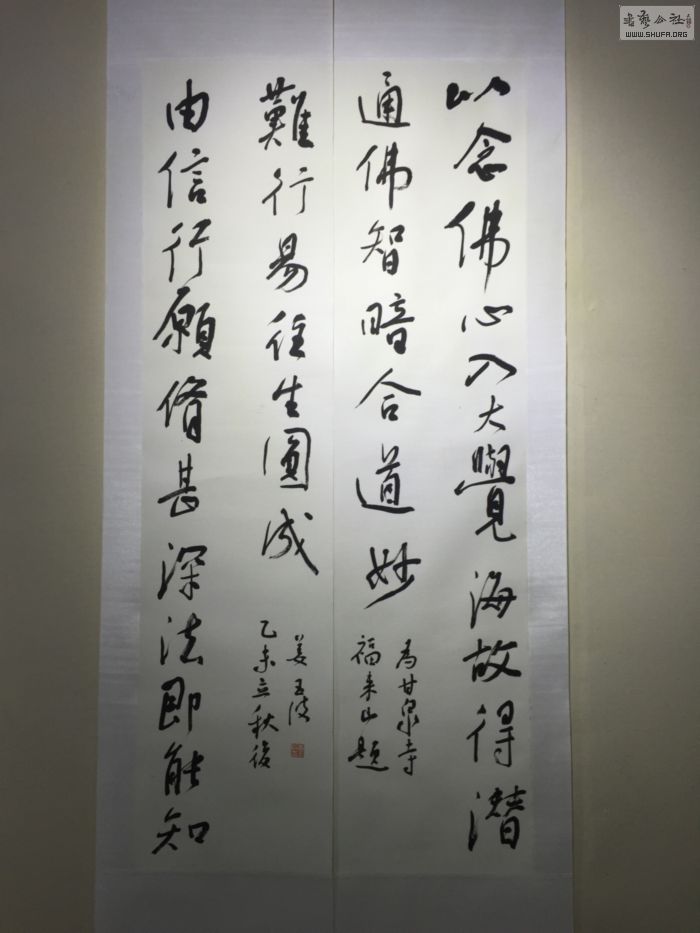 書藝公社
WWW.SHUFA.ORG
以念佛心入大覺海故得潛
通佛智暗合道妙
為甘泉寺
福来山題
由信行願脩甚深法即能知
難行易往生圓成
乙未立秋後
姜